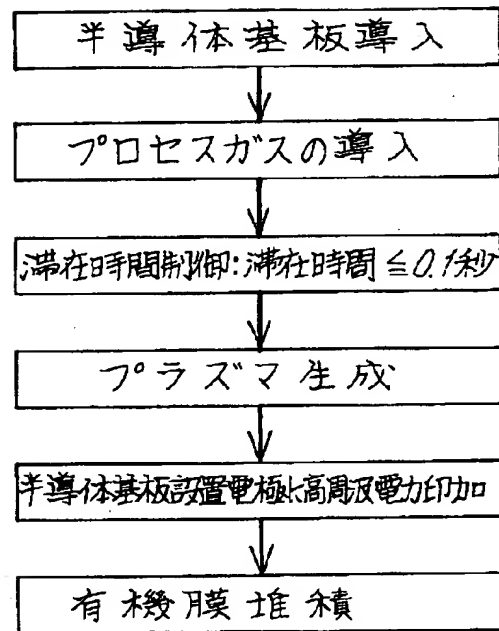 半導体基板導入
プロセスガスの導入
滞在時間制御:滞在時間≦0.1秒
プラズマ生成
半導体基板設置電極に高周波電力印加
有機膜堆積